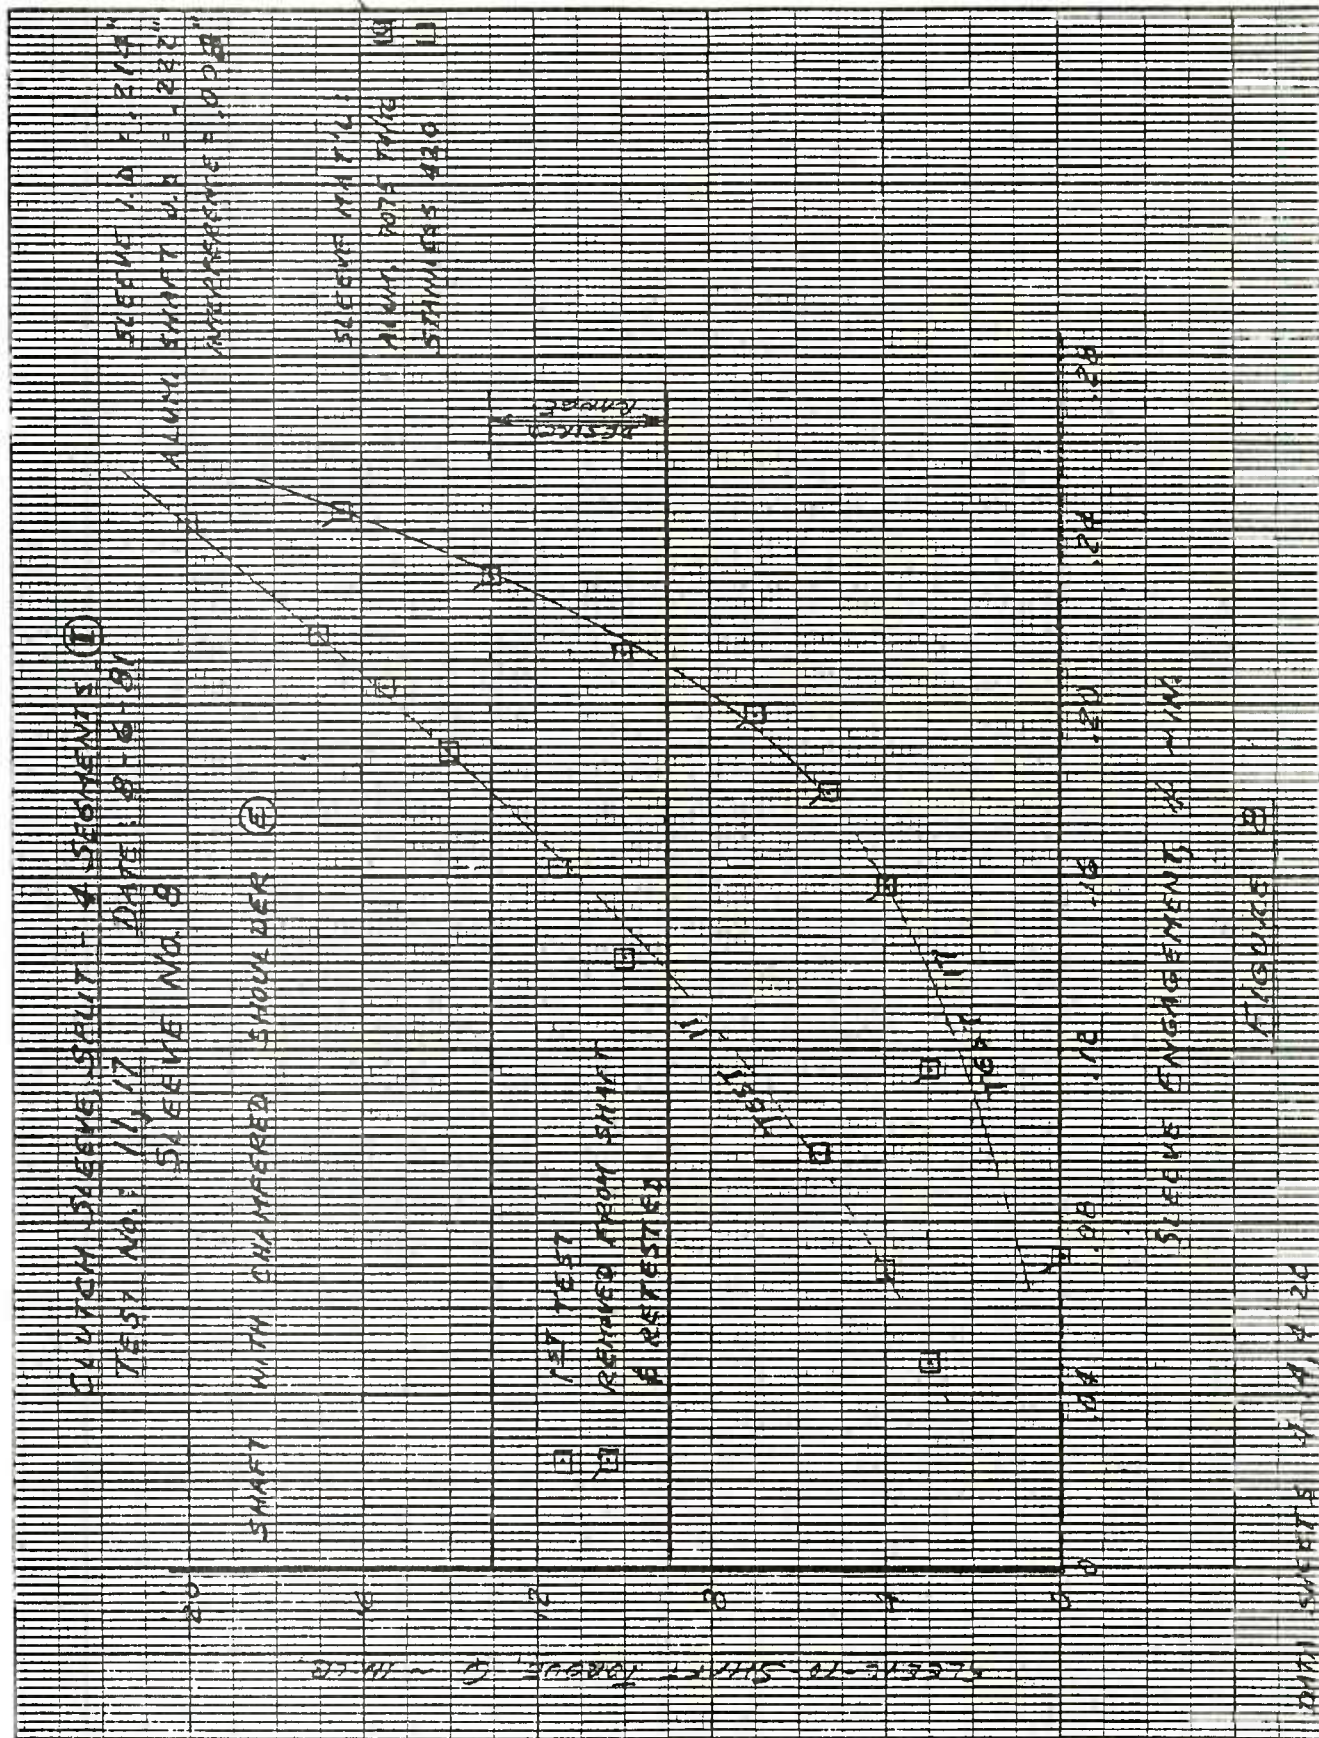 CLUTCH SLEEVE SPLIT - 4 SEGMENTS I
TEST NO.: 11, 17 DATE: 8-6-81
SLEEVE NO. 8
SHAFT WITH CHAMFERED SHOULDER E
SLEEVE I.D = .214"
ALUM. SHAFT O.D = .222"
INTERFERENCE = .008"
SLEEVE MAT'L:
ALUM. 7075
STAINLESS 420
1ST TEST
REMOVED FROM SHAFT
& RETESTED
DESIRED
RANGE
TEST 11
TEST 17
SLEEVE-TO-SHAFT TORQUE, ~ IN-LB
20
16
12
8
4
0
0
.04
.08
.12
.16
.20
.24
.28
SLEEVE ENGAGEMENT, ~ IN.
FIGURE 8
DATA SHEETS